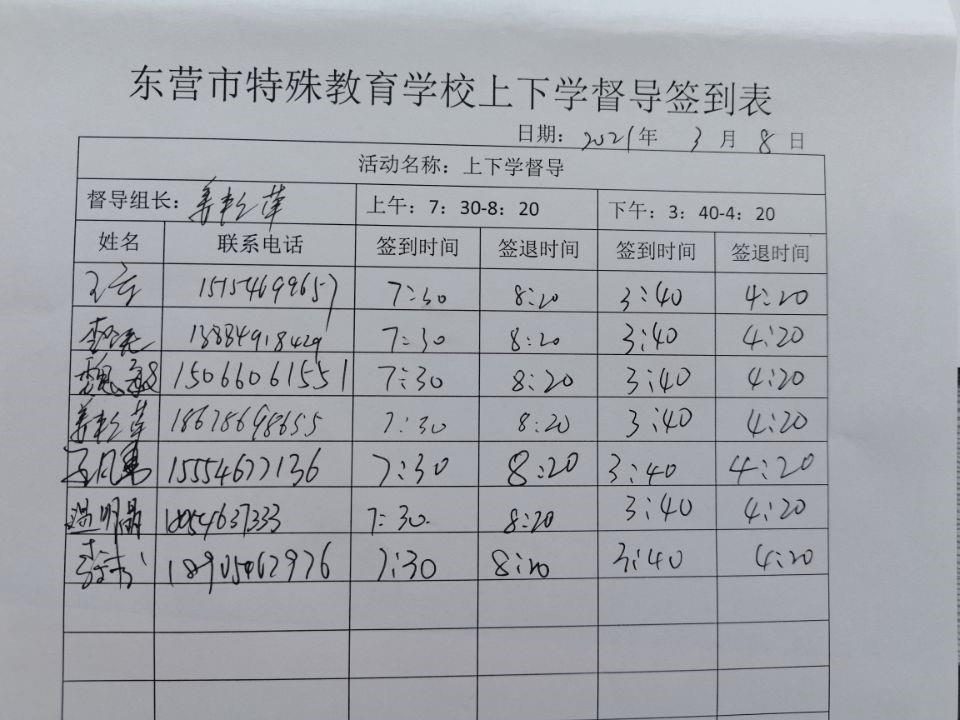 东营市特殊教育学校上下学督导签到表
日期：2021年 3 月 8 日
活动名称：上下学督导
督导组长： 上午：7：30-8：20 下午：3：40-4：20
姓名 联系电话 签到时间 签退时间 签到时间 签退时间
15154699657 7:30 8:20 3:40 4:20
13884918429 7:30 8:20 3:40 4:20
魏敏 15066061551 7:30 8:20 3:40 4:20
18678698655 7:30 8:20 3:40 4:20
15554677136 7:30 8:20 3:40 4:20
明晶 18054637333 7:30 8:20 3:40 4:20
18905462976 7:30 8:20 3:40 4:20